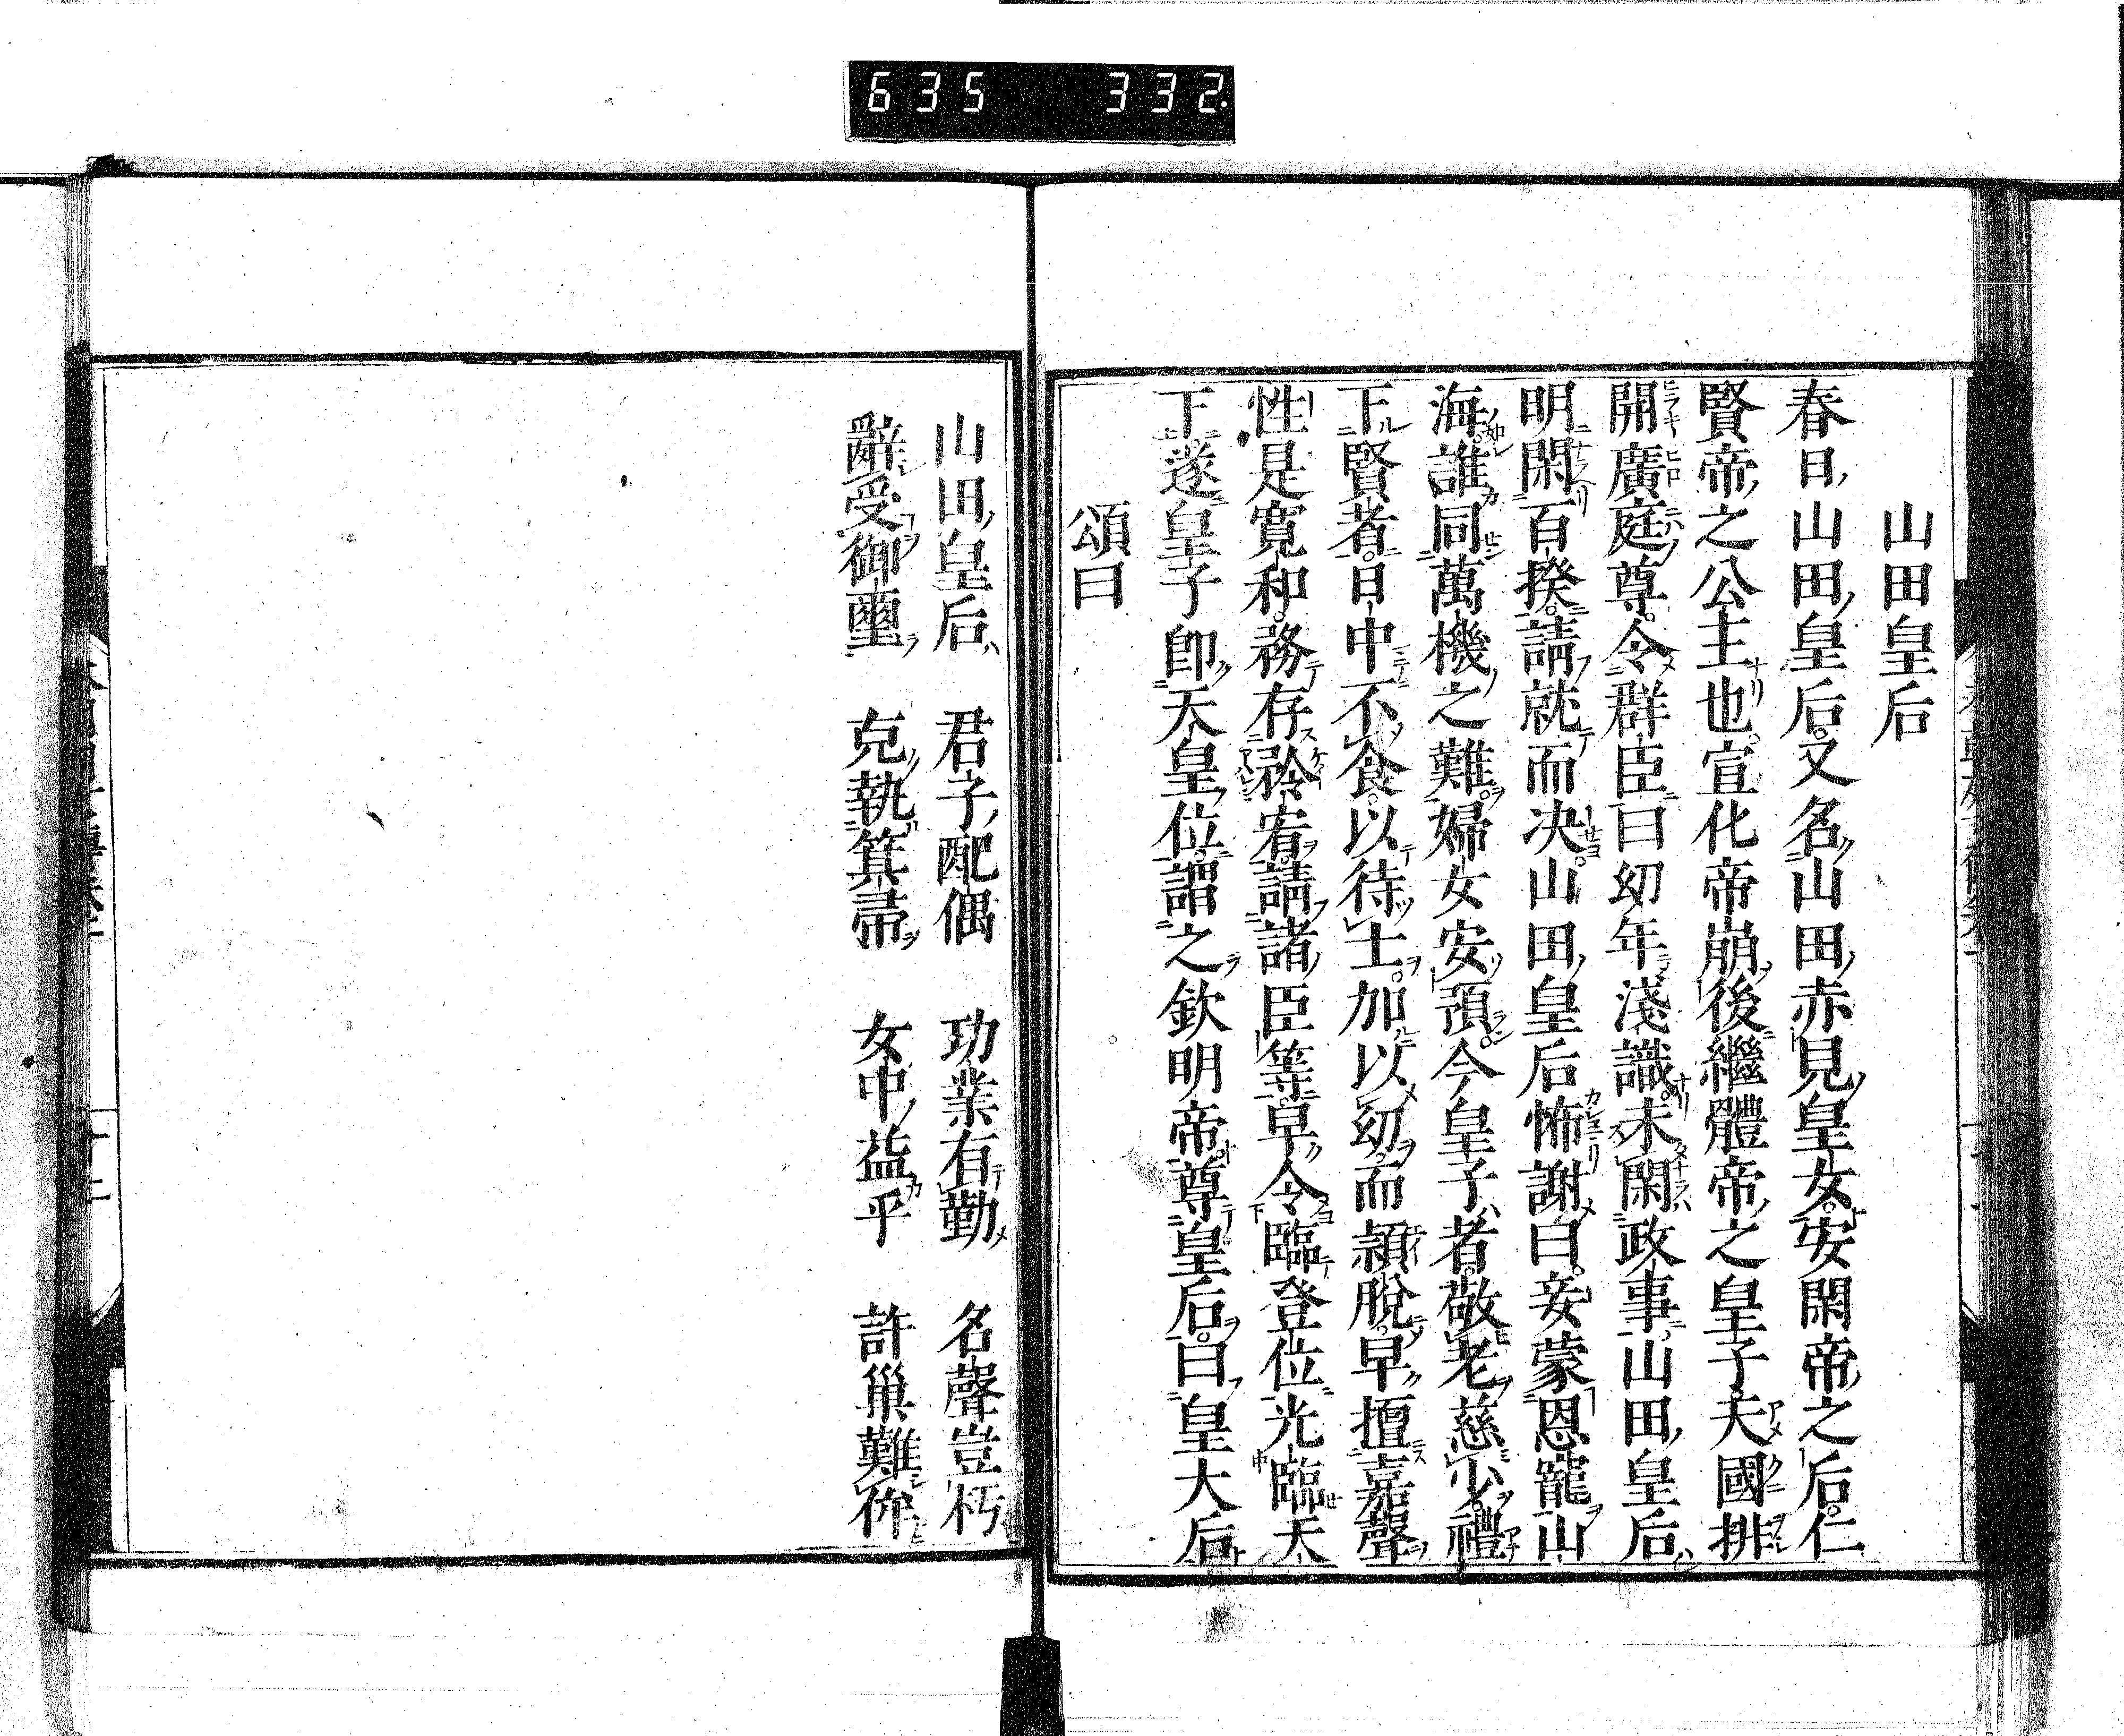 635 332
山田皇后
春日山田皇后。又名山田赤見皇女。安閑帝之后。仁
賢帝之公主也。宣化帝崩後繼體帝之皇子天國排
開廣庭尊。令群臣曰幼年淺識。未閑政事山田皇后
明閑百揆。請就而決。山田皇后怖謝曰。妾蒙恩寵山
海誰同萬機之難。婦女安預。今皇子者。敬老慈少。禮
下賢者。日中不食。以待士。加以幼而頴脫。早擅嘉聲
性是寛和。務存矜宥。請諸臣等。早令臨登位光臨天
下遂皇子即天皇位。謂之欽明帝。尊皇后。曰皇大后
頌曰
山田皇后 君子配偶 功業有勤 名聲豈朽
辭受御璽 克執箕帚 女中益乎 許巢難作